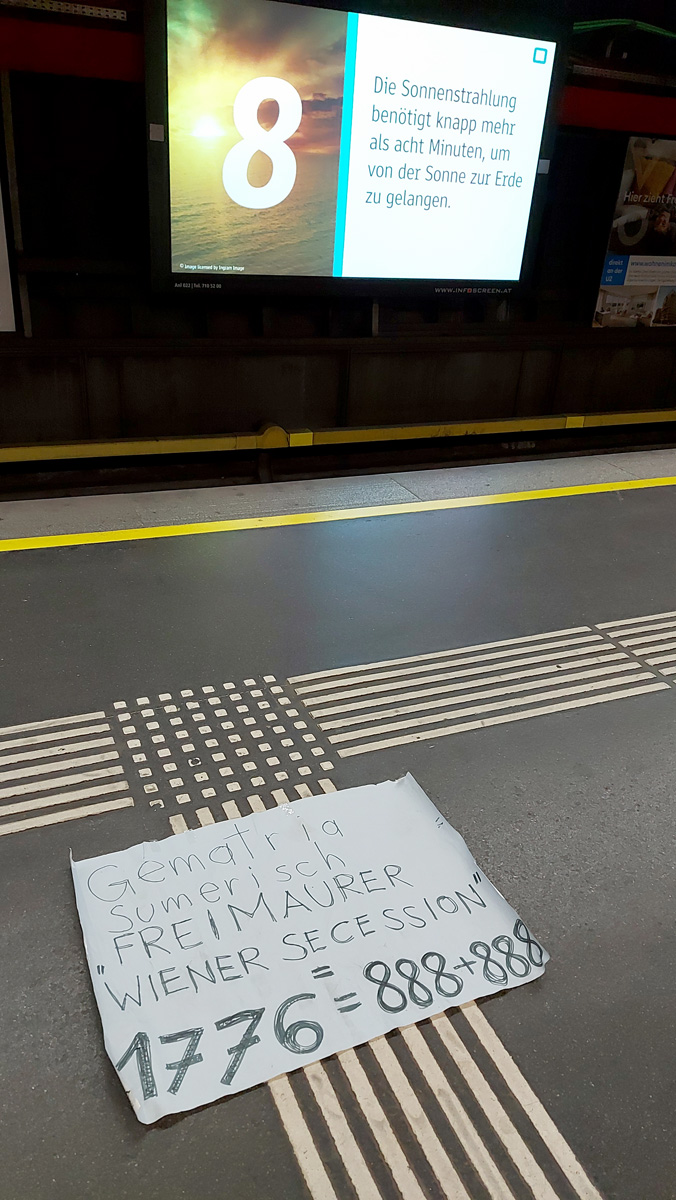 8
Die Sonnenstrahlung
benötigt knapp mehr
als acht Minuten, um
von der Sonne zur Erde
zu gelangen.
© Image licensed by Ingram Image
WWW.INFOSCREEN.AT
Hier zieht
direkt
an der
U2
Gematria
sumerisch
FREIMAURER
"WIENER SECESSION"
=
1776 = 888+888